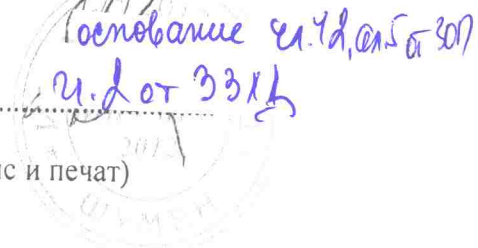 основание чл.42, ал.5 от ЗОП
чл.2 от ЗЗЛД
201
с и печат)
ШУМЕН